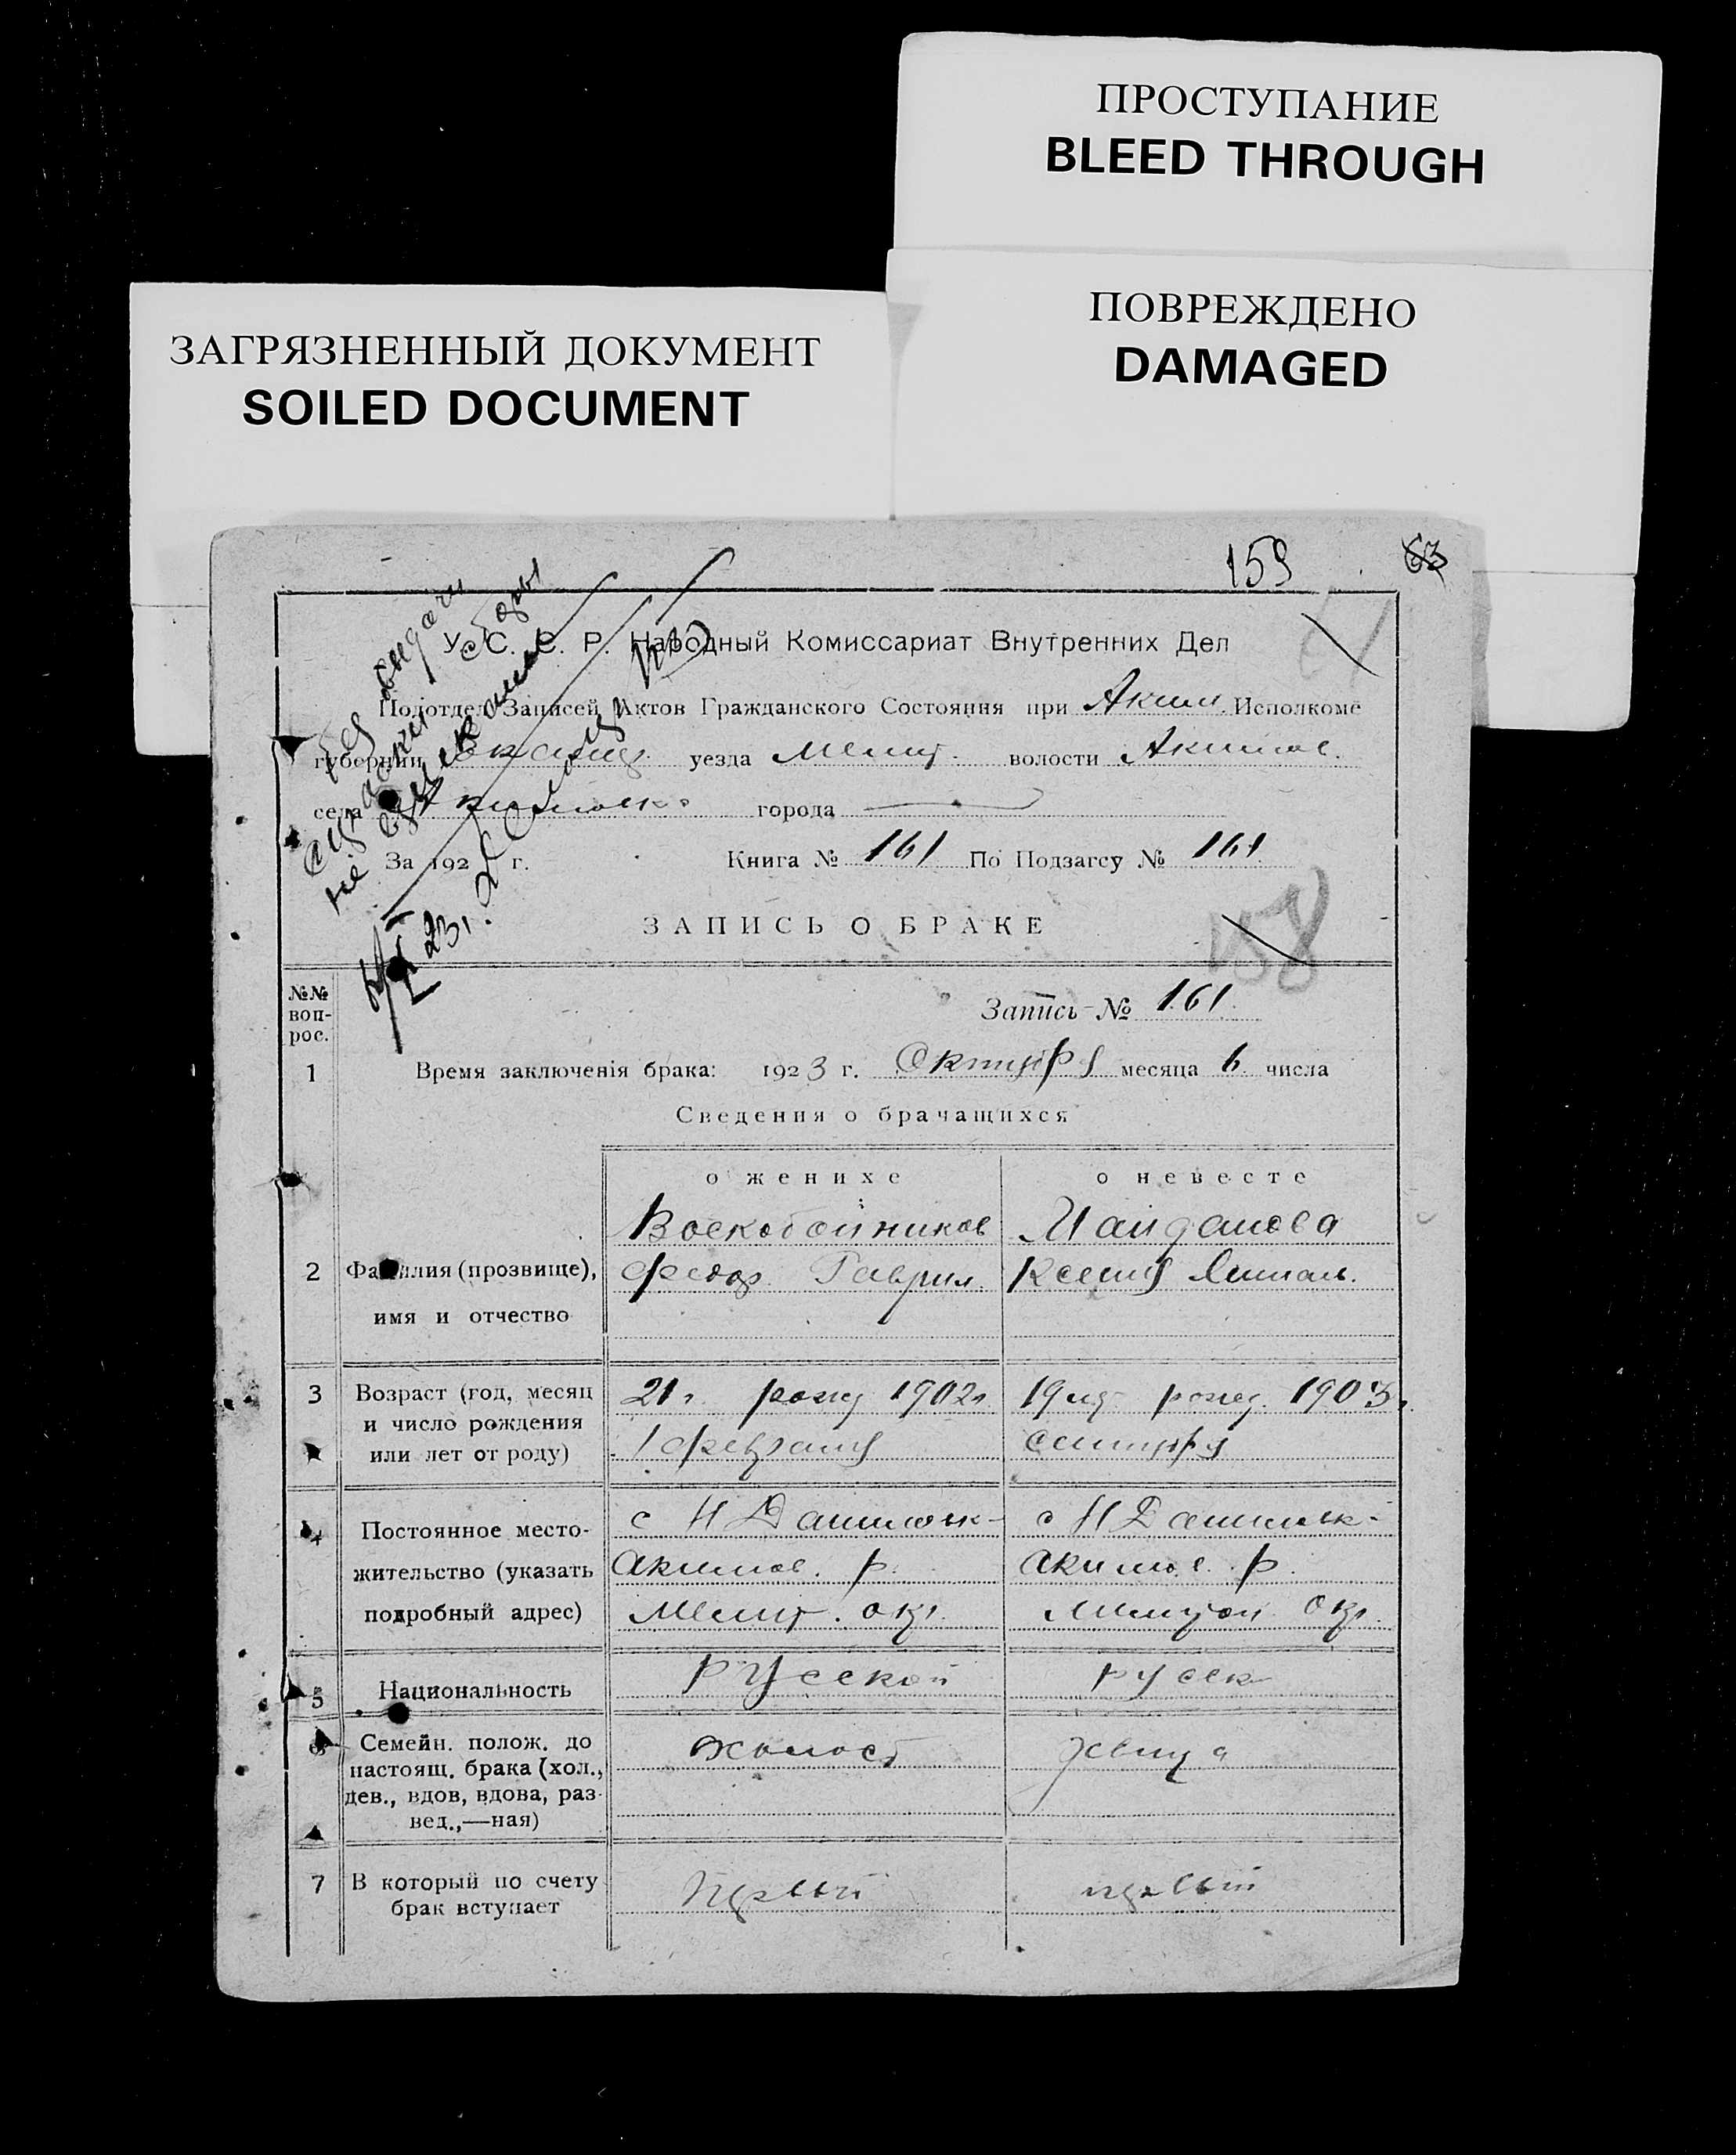 ПРОСТУПАНИЕ
BLEED THROUGH
ПОВРЕЖДЕНО
DAMAGED
ЗАГРЯЗНЕННЫЙ ДОКУМЕНТ
SOILED DOCUMENT
159 63
У. С. С. Р. Народный Комиссариат Внутренних Дел
Подотдел Записей Актов Гражданского Состояния при Аким. Исполкоме
губернии уезда Мелит. волости Акимов.
села города
За 192 г. Книга № 161 По Подзагсу № 161
ЗАПИСЬ О БРАКЕ
158
№№ воп-
рос.
Запись № 161
1 Время заключенія брака: 1923 г. Октября месяца 6 числа
Сведения о брачащихся
о женихе о невесте
Воскобойников Майданова
2 Фамилия (прозвище), Федор Гаврил. Ксения
имя и отчество
3 Возраст (год, месяц 21 г. рожд 1902 г 19 рожд. 1903 г.
и число рождения
или лет от роду) 1 февраля сентября
4 Постоянное место- с Н Даниловк- с Н Даниловк-
жительство (указать Акимов. р. Акимов. р.
подробный адрес) Мелит. окр. Мелитоп окр.
5 Национальность Русский русск
6 Семейн. полож. до холост девица
настоящ. брака (хол.,
дев., вдов, вдова, раз-
вед.,—ная)
7 В который по счету первый первый
брак вступает